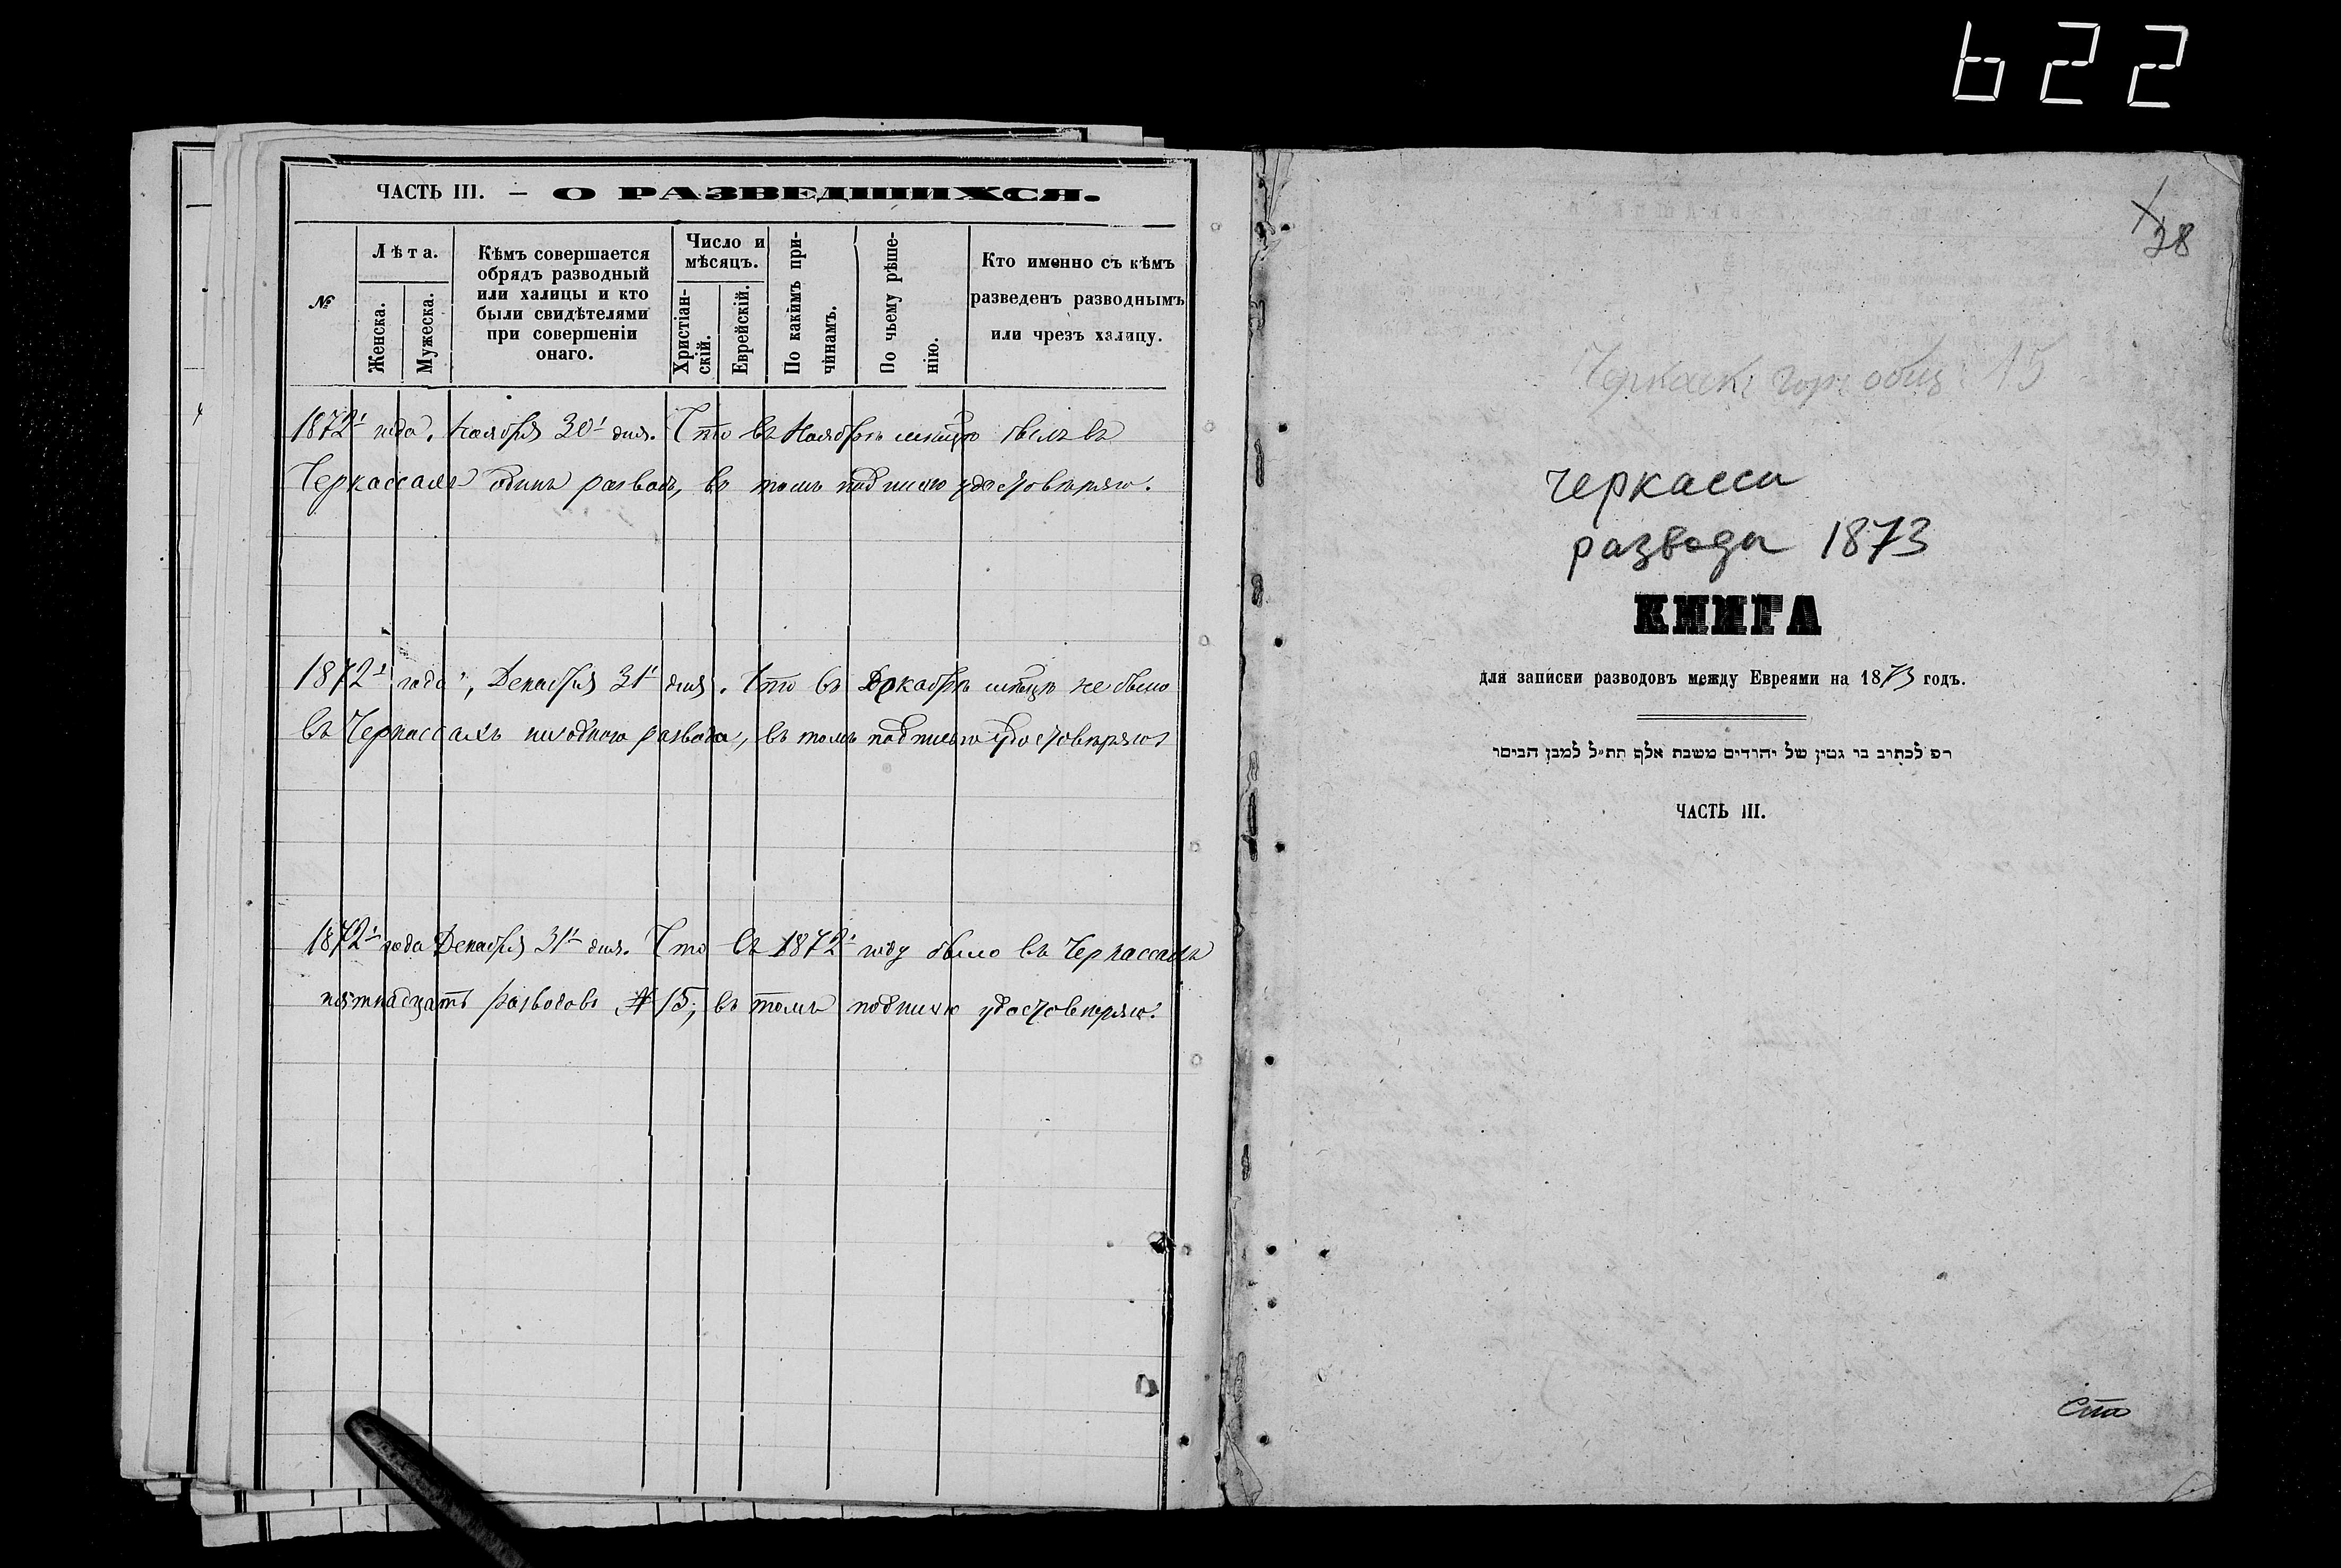 622
ЧАСТЬ III. — О РАЗВЕДШИХСЯ.
№
Лѣта.
Женска.
Мужеска.
Кѣмъ совершается
обрядъ разводный
или халицы и кто
были свидѣтелями
при совершеніи
онаго.
Число и
мѣсяцъ.
Христіан-
скій.
Еврейскій.
По какимъ при-
чинамъ.
По чьему рѣше-
нію.
Кто именно съ кѣмъ
разведенъ разводнымъ
или чрезъ халицу.
1872 года, Ноября 30 дня. Что въ Ноябрѣ мѣсяцѣ былъ въ
Черкассахъ одинъ разводъ, въ томъ подписью удостовѣряю.
1872 года, Декабря 31 дня. Что въ Декабрѣ мѣсяцѣ не было
въ Черкассахъ ни одного развода, въ томъ подписью удостовѣряю
1872 года Декабря 31 дня. Что въ 1872 году было въ Черкассахъ
пятнадцать разводовъ № 15, въ томъ подписью удостовѣряю.
38
15
Черкассы
разводы 1873
КНИГА
для записки разводовъ между Евреями на 1873 годъ.
לכתוב בו גטין של יהודים משנת אלף תת״ל למבן
ЧАСТЬ III.